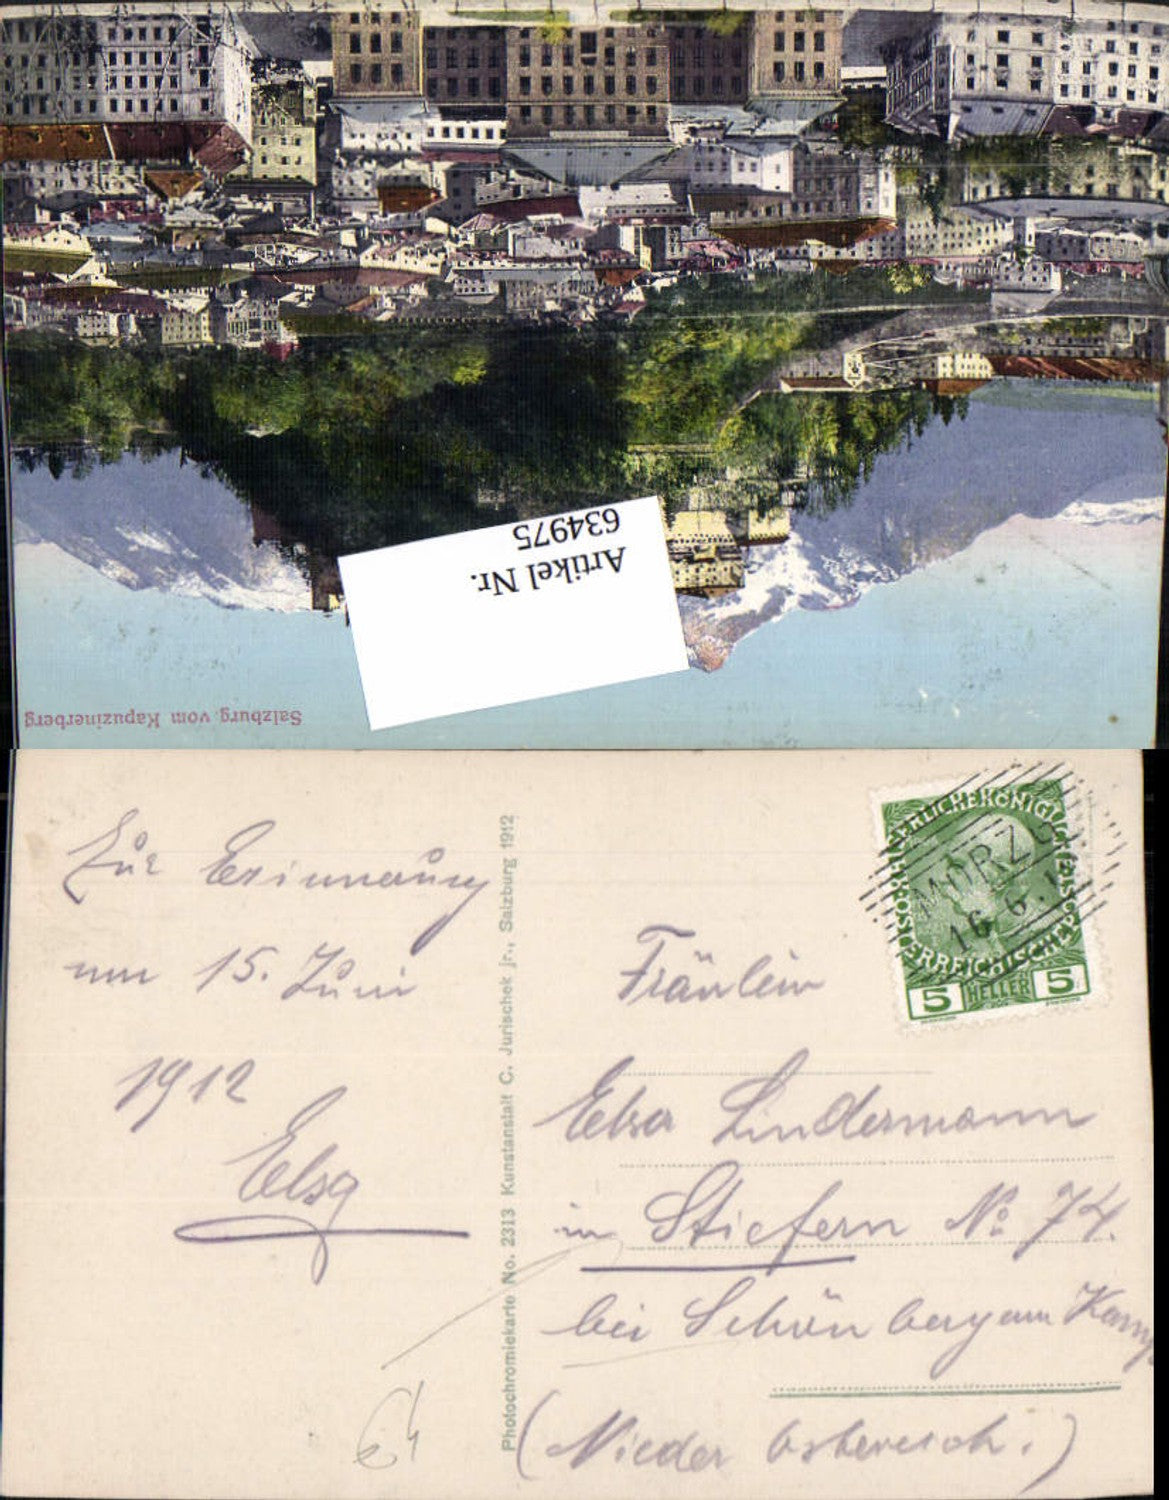 Salzburg vom Kapuzinerberg
Artikel Nr.
634975
Zur Erinnerung
um 15. Juni
1912
Elsa
Photochromiekarte No. 2313 Kunstanstalt C. Jurischek jr., Salzburg 1912
MORZG
16.6.1
KAISERLICHE KÖNIGLICHE ÖSTERREICHISCHE POST
5 HELLER 5
Fräulein
Elsa Lindermann
in Stiefern No 74.
bei Schönberg am Kamp
(Nieder Östereich.)